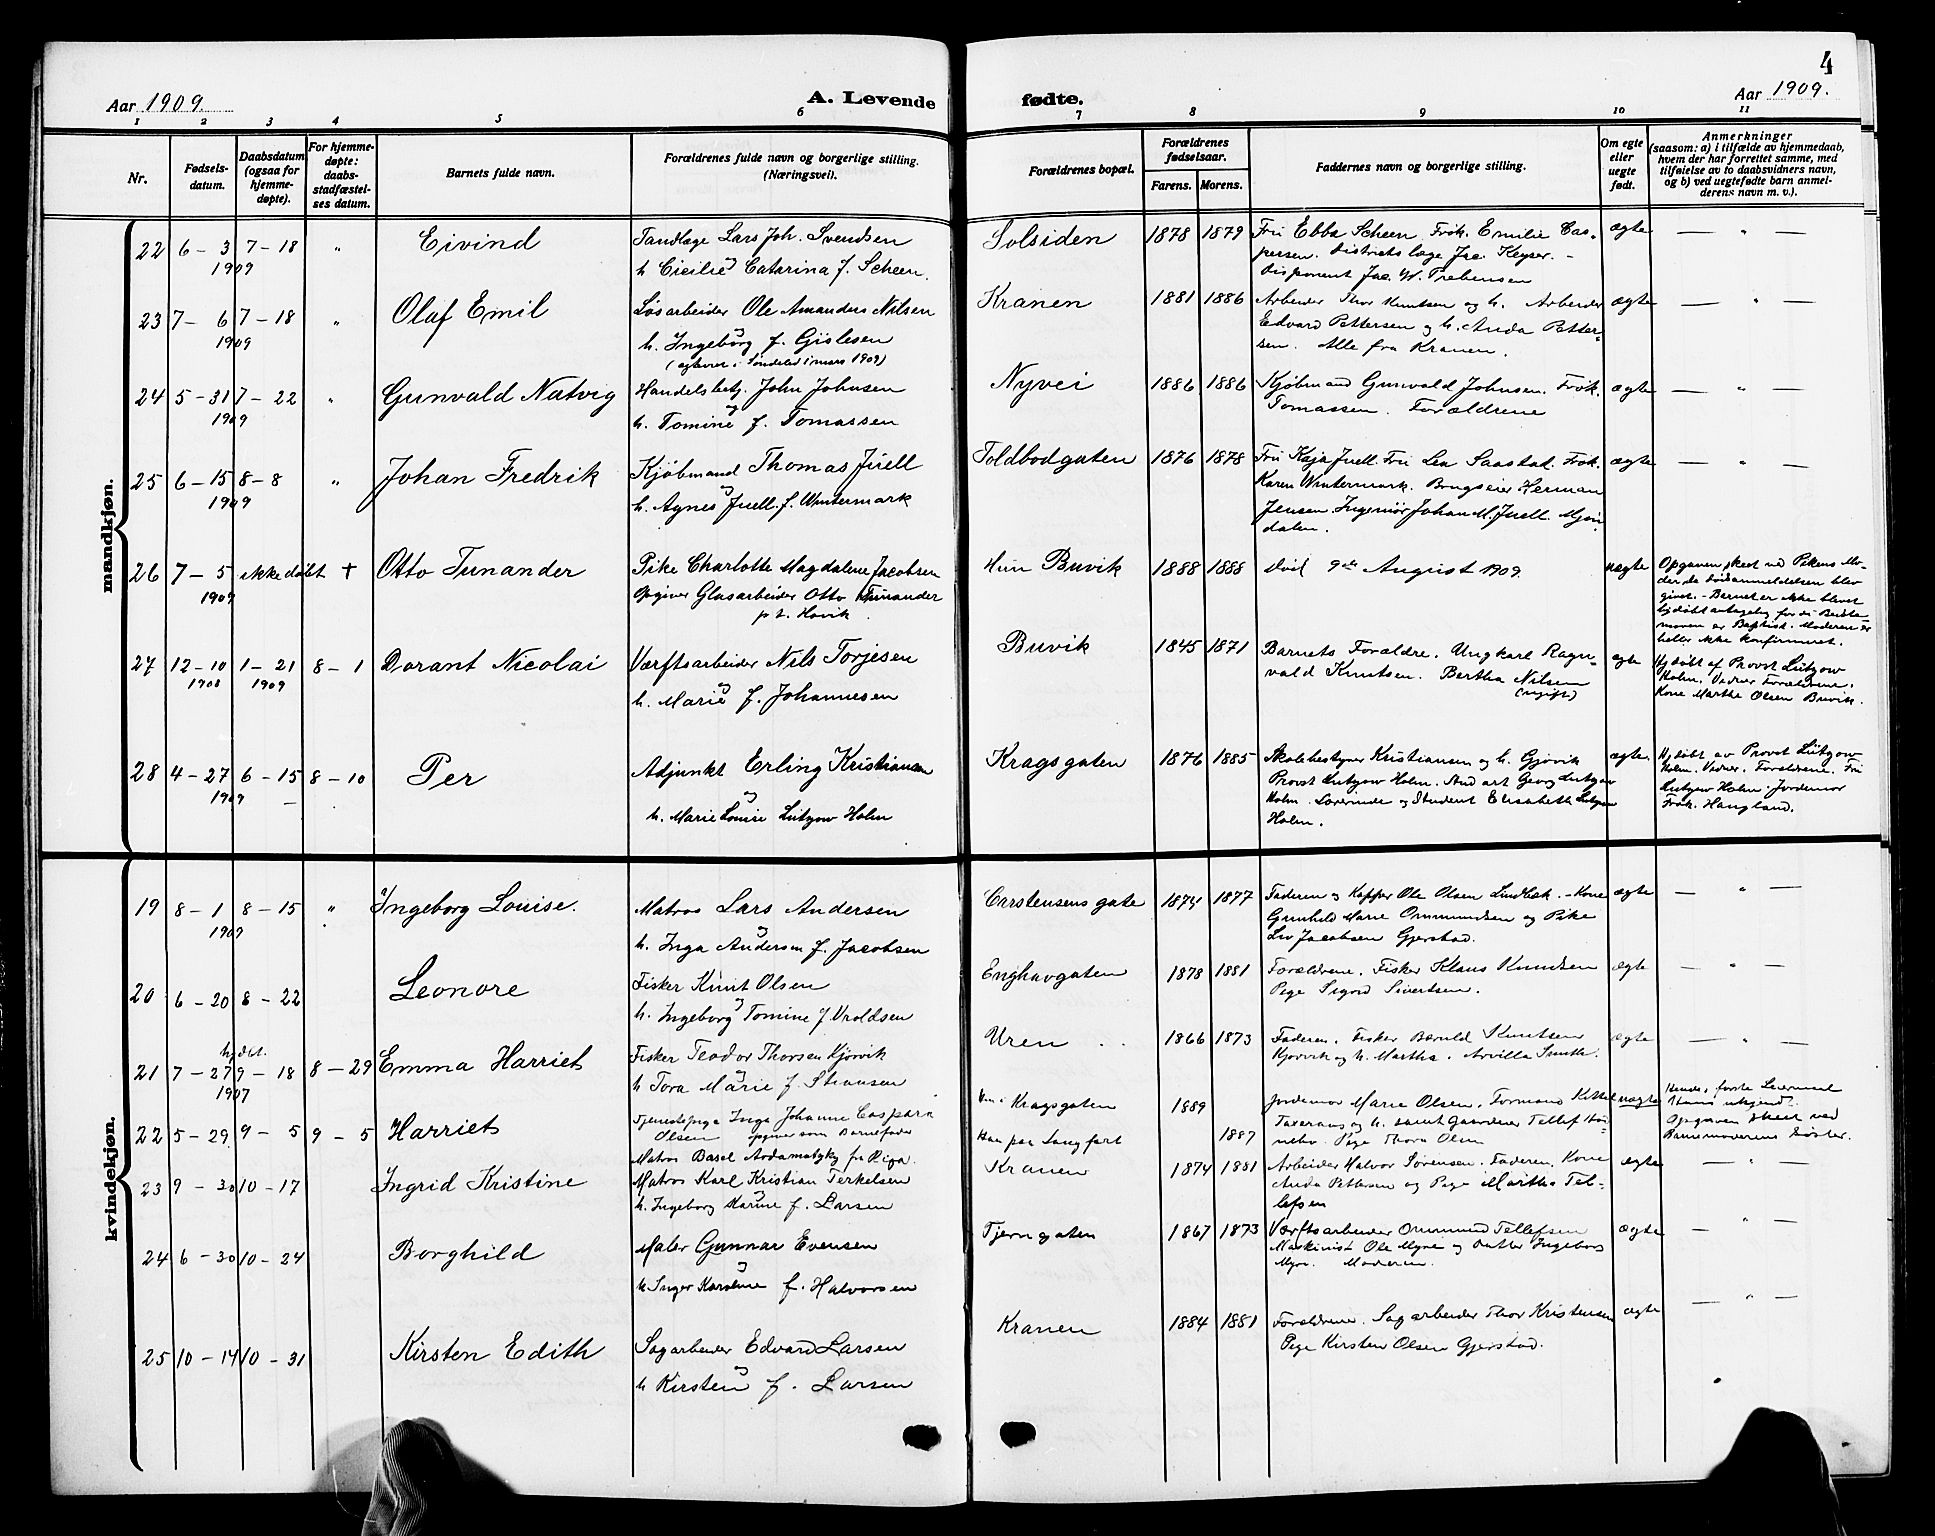 4
Aar 1909.
A. Levende
fødte.
Aar 1909.
1 2 3 4 5 6 7 8 9 10 11
Nr.
Fødsels-
datum.
Daabsdatum
(ogsaa for
hjemme-
døpte).
For hjemme-
døpte:
daabs-
stadfæstel-
ses datum.
Barnets fulde navn.
Forældrenes fulde navn og borgerlige stilling.
(Næringsvei).
Forældrenes bopæl.
Forældrenes
fødselsaar.
Farens. Morens.
Faddernes navn og borgerlige stilling.
Om egte
eller
uegte
født.
Anmerkninger
(saasom: a) i tilfælde av hjemmedaab,
hvem der har forrettet samme, med
tilføielse av to daabsvidners navn,
og b) ved uegtefødte barn anmel-
derens navn m. v.).
mandkjøn.
22 6 – 3 7 – 18 " Eivind Tandlæge Lars Joh. Svendsen Solsiden 1878 1879 Fru Ebba Scheen Frøk. Emilie Cas- ægte — " —
1909 og h. Cicilie Catarina f. Scheen. persen. Distriktslæge Jac. Keyser. –
Disponent Jac. W. Prebensen
23 7 – 6 7 – 18 " Olaf Emil Løsarbeider Ole Amandus Nilsen Kranen 1881 1886 Arbeider Thor Knutsen og h. Arbeider ægte — " —
1909 og h. Ingeborg f. Gislesen Edvard Pettersen og h. Anda Petter-
(egteviet i Søndeled i mars 1909) sen. Alle fra Kranen.
24 5 – 31 7 – 22 " Gunvald Natvig Handelsbetj. John Johnsen Nyvei 1886 1886 Kjøbmand Gunvald Johnsen. Frøk. ægte — " —
1909 og h. Tomine f. Tomassen Tomassen. Forældrene
25 6 – 15 8 – 8 " Johan Fredrik Kjøbmand Thomas Juell Toldbodgaten 1876 1878 Fru Kaja Juell. Fru Lea Saastad. Frøk. ægte — " —
1909 og h. Agnes Juell. f. Wintermark Karen Wintermark. Brugseier Herman
Jensen. Ingeniør Johan M. Juell. Mjøn
dalen.
26 7 – 5 ikke døbt † Otto Tunander Pike Charlotte Magdalene Jacobsen Hun Buvik 1888 1888 Død 9de August 1909. uægte Opgaven skeet ved Pikens Mo-
1909 Opgiver Glasarbeider Otto Tunander der, da Fødsanmeldelsen blev
p t. Høvik givet. – Barnet er ikke blevet
hjdøbt antagelig fordi Bedste-
moren er Baptist. Moderen er
heller ikke konfirmeret.
27 12 – 10 1 – 21 8 – 1 Dorant Nicolai Værftsarbeider Nils Torjesen Buvik 1845 1871 Barnets Forældre. Ungkarl Ragn- ægte Hjdøbt af Provst Lützow
1908 1909 og h. Marie f. Johannesen vald Knutsen. Bertha Nilsen Holm. Vidner Forældrene.
(ugift) Kone Marthe Olsen Buvik.
28 4 – 27 6 – 15 8 – 10 Per Adjunkt Erling Kristiansen Kragsgaten 1876 1885 Skolebestyrer Kristiansen og h. Gjøvik ægte. Hjdøbt av Provst Lützow
1909 — og Provst Lutzow Holm. Stud art Georg Lutzow Holm. Vidner. Forældrene. Fru
h. Marie Louise Lützow Holm Holm. Lærerinde og Student Elisabeth Lutzow Lutzow Holm Jordemor
Holm. Frøk. Haugland.
kvindekjøn.
19 8 – 1 8 – 15 " Ingeborg Louise. Matros Lars Andersen Carstensens gate 1874 1877 Faderen og Kapper Ole Olsen Lindbæk. – Kone ægte — " —
1909 og h. Inga Andersen f. Jacobsen Gunhild Marie Ommundsen og Pike
Liv Jacobsen Gjerstad.
20 6 – 20 8 – 22 Leonore Fisker Knut Olsen Enghavgaten 1878 1881 Forældrene. Fisker Klaus Knudsen ægte — " —
og h. Ingeborg Tomine f. Vroldsen Pige Sigrid Sivertsen.
hjdbt.
21 7 – 27 9 – 18 8 – 29 Emma Harriet Fisker Teodor Thorsen Kjørvik Uren 1866 1873 Faderen. Fisker Bernld Knutsen ægte — " —
1907 og h Tora Marie f. Stiansen Kjørvik og h. Martha. Arvilla Smith.
22 5 – 29 9 – 5 9 – 5 Harriet Tjenestepige Inga Johanne Caspara Hun i Kragsgaten 1889 Jordemor Marie Olsen. Formand Kittel uægte
Olsen opgiver som Barnefader Han paa Langfart 1887 Opgaven skeet ved
Matros Basel fra Riga. Pige Thora Olsen Barnemoderens Søster.
23 9 – 30 10 – 17 Ingrid Kristine Matros Karl Kristian Terkelsen Kranen 1874 1881 Arbeider Halvor Sørensen. Faderen. Kone ægte — " —
og h. Ingeborg Marie f. Larsen Anda Pettersen og Pige Martha Tel-
lefsen
24 6 – 30 10 – 24 Borghild Maler Gunnar Evensen Tjerngaten 1867 1873 Værftsarbeider Ommund Tellefsen ægte — " —
og h Inger Karoline f. Halvorsen Maskinist Ole Myre og Datter Ingeborg
Myre. Moderen.
25 10 – 14 10 – 31 Kirsten Edith Sagarbeider Edvard Larsen Kranen 1884 1881 Forældrene. Sagarbeider Thor Kristensen ægte — " —
og h Kirsten f. Larsen Pige Kirsten Olsen Gjerstad.